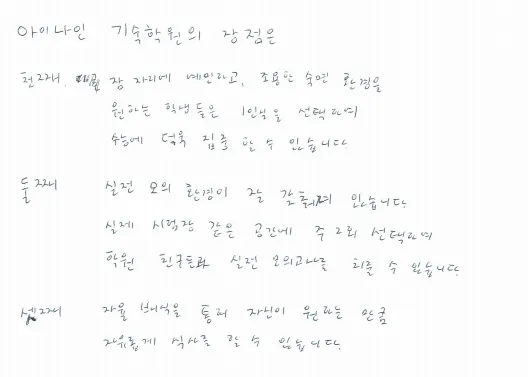 아이나인 기숙학원의 장점은
첫째, 잠자리에 예민하고, 조용한 숙면 환경을
원하는 학생들은 1인실을 선택하여
수능에 더욱 집중 할 수 있습니다
둘째 실전 모의 환경이 잘 갖춰져 있습니다.
실제 시험장 같은 공간에 주 2회 선택하여
학원 친구들과 실전 모의고사를 치룰 수 있습니다.
셋째 자율 배식을 통해 자신이 원하는 만큼
자유롭게 식사를 할 수 있습니다.